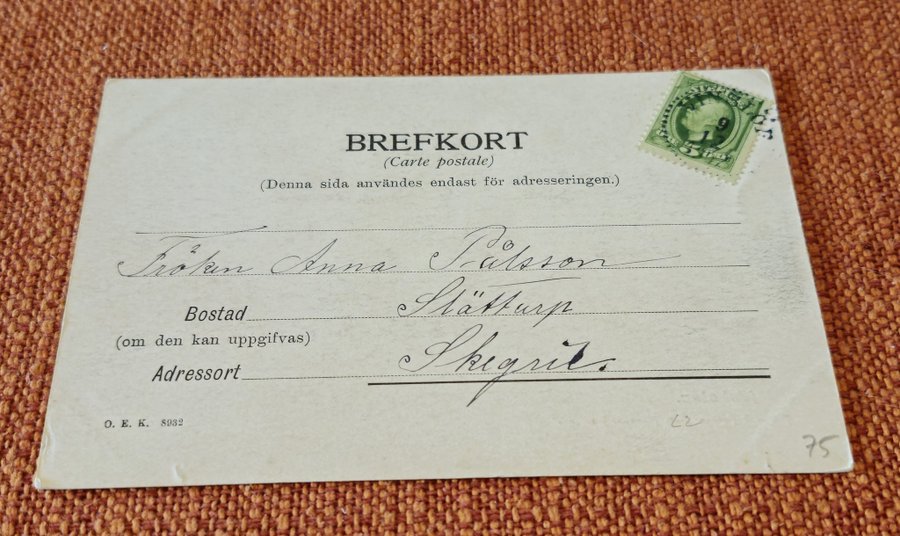 BREFKORT
(Carte postale)
(Denna sida användes endast för adresseringen.)
Fröken Anna Pålsson
Bostad Slätturp
(om den kan uppgifvas)
Adressort Skegrie.
O. E. K. 8932
75